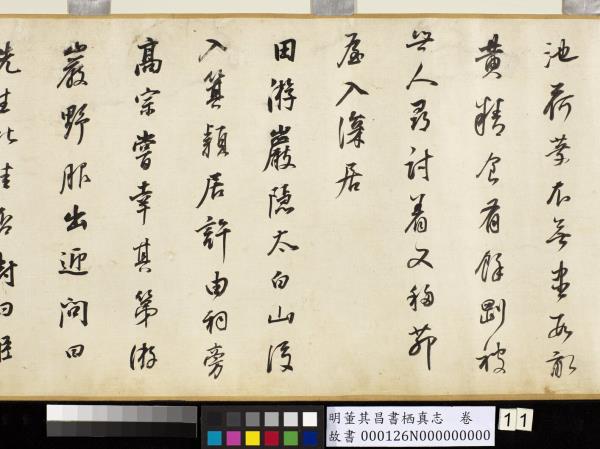 池荷葉衣無盡數畝
黃精食有餘剛被
世人尋討著又移茆
屋入深居
田游巖隱太白山後
入箕潁居許由祠旁
高宗嘗幸其第游
巖野服出迎問曰
先生比佳否對曰臣
明董其昌書栖真志 卷
故書 000126N000000000
11